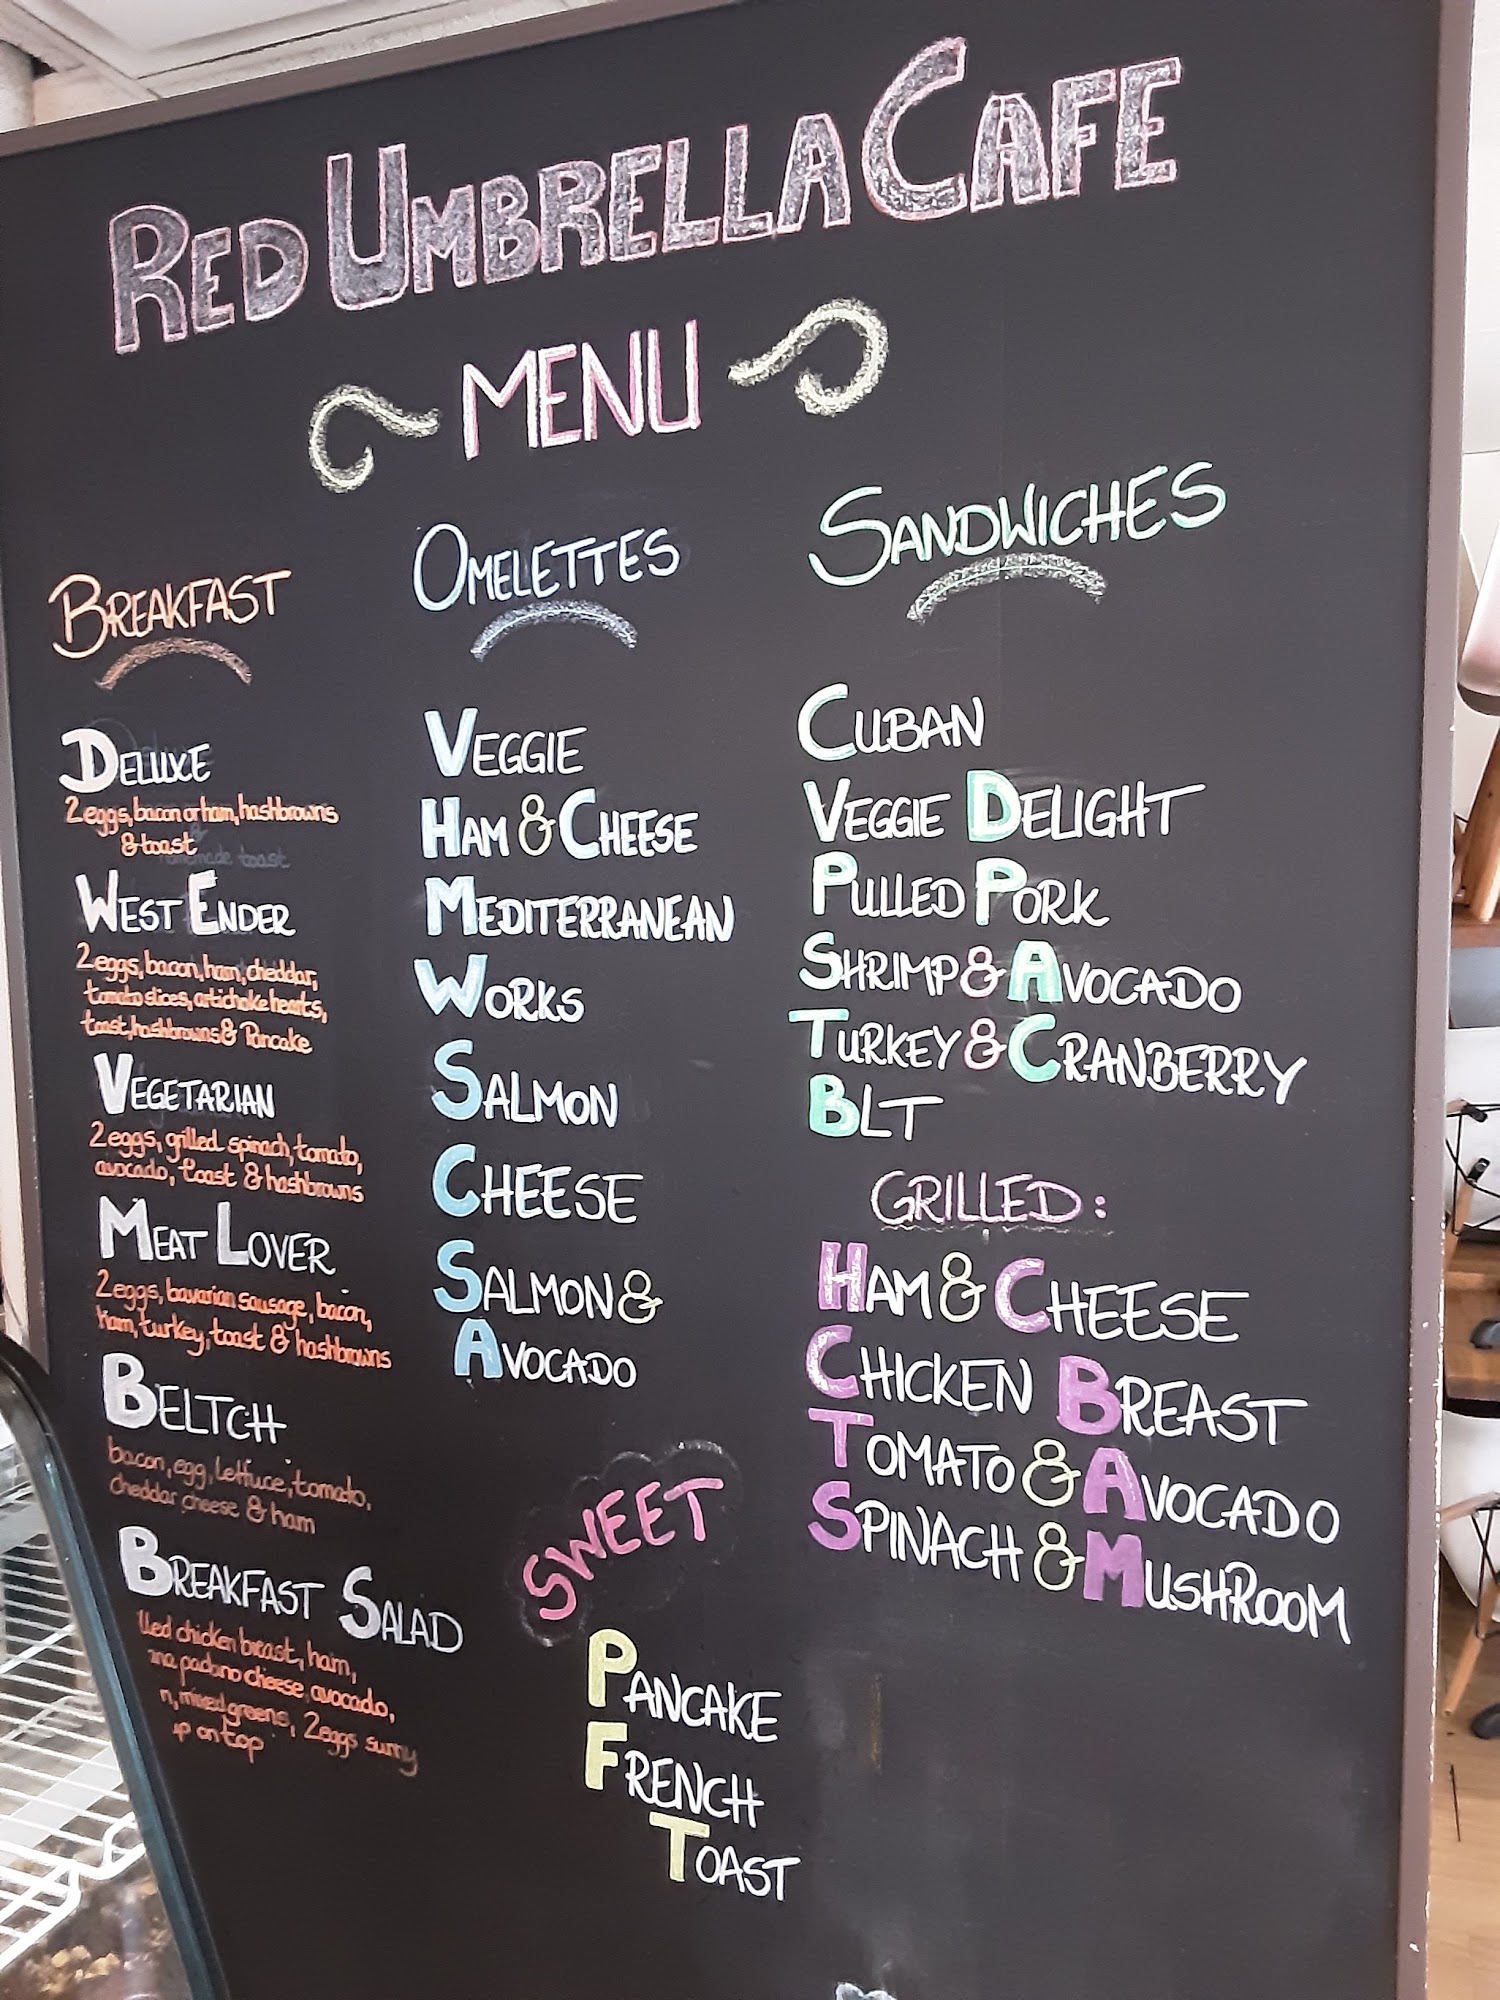 RED UMBRELLA CAFE
MENU
BREAKFAST
DELUXE
2 eggs, bacon or ham, hashbrowns
& toast
homemade toast
WEST ENDER
2 eggs, bacon, ham, cheddar,
tomato slices, artichoke hearts,
toast, hashbrowns & Pancake
VEGETARIAN
2 eggs, grilled spinach, tomato,
avocado, toast & hashbrowns
MEAT LOVER
2 eggs, bavarian sausage, bacon,
ham, turkey, toast & hashbrowns
BELTCH
bacon, egg, lettuce, tomato,
cheddar cheese & ham
BREAKFAST SALAD
chicken breast, ham,
padano cheese, avocado,
mixed greens, 2 eggs sunny
on top
OMELETTES
VEGGIE
HAM & CHEESE
MEDITERRANEAN
WORKS
SALMON
CHEESE
SALMON &
AVOCADO
SWEET
PANCAKE
FRENCH
TOAST
SANDWICHES
CUBAN
VEGGIE DELIGHT
PULLED PORK
SHRIMP & AVOCADO
TURKEY & CRANBERRY
BLT
GRILLED:
HAM & CHEESE
CHICKEN BREAST
TOMATO & AVOCADO
SPINACH & MUSHROOM